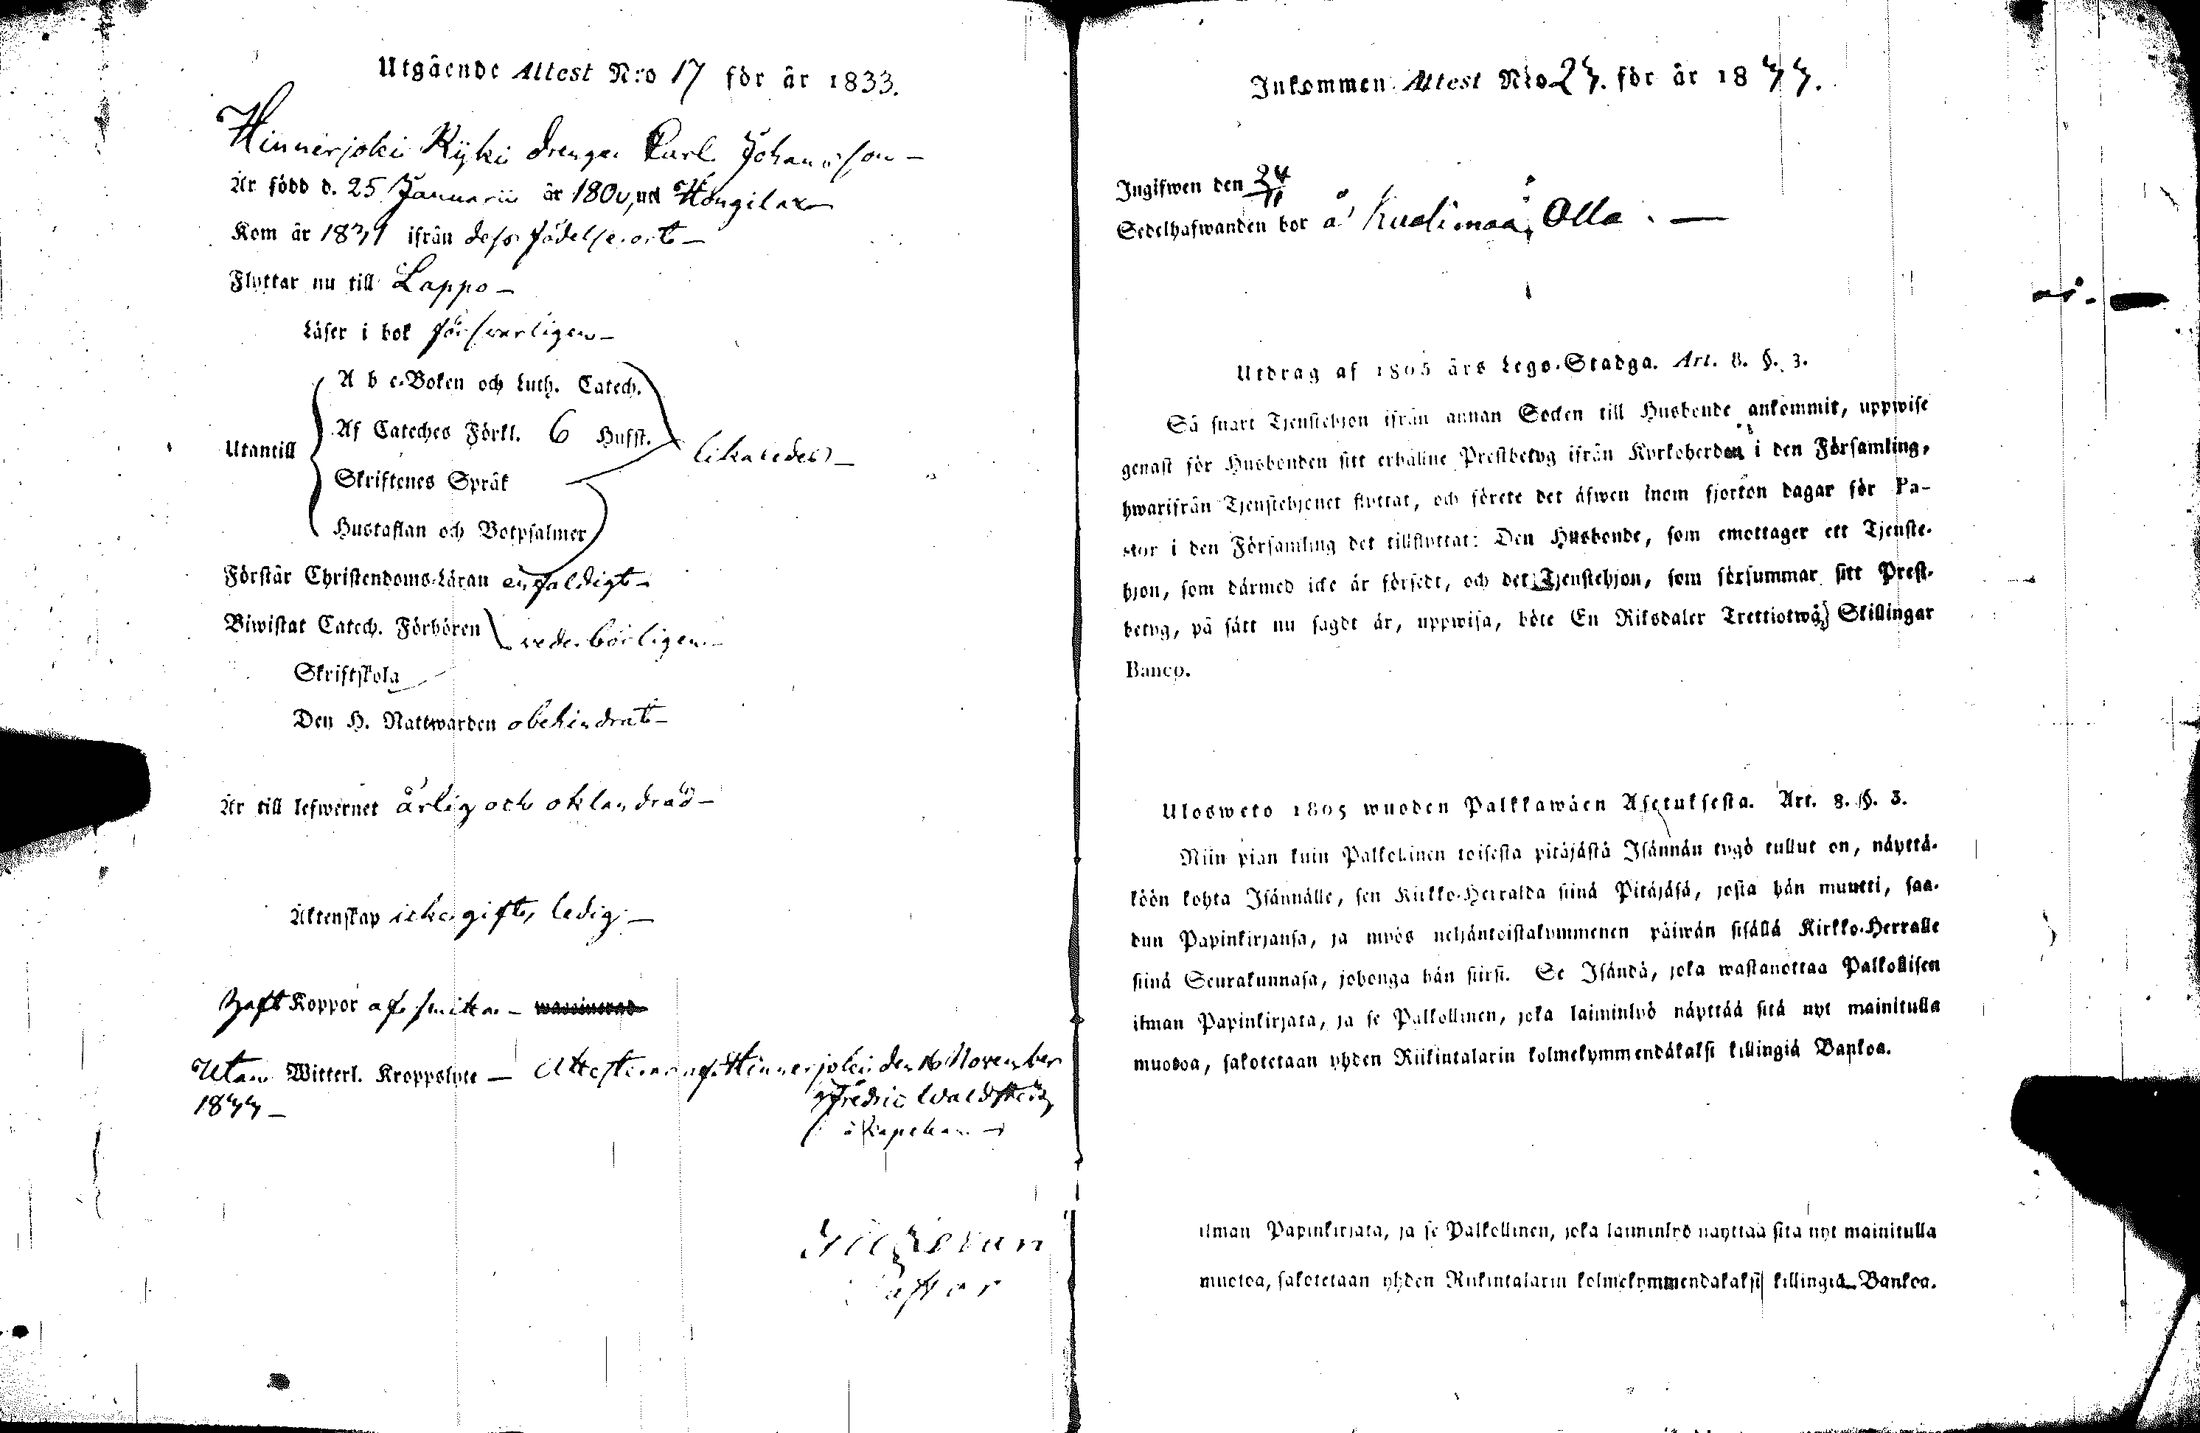 Utgående Attest N:o 17 för år 1833.
Hinnerjoki Kyki drengen Carl Johansson –
Är född d. 25 Januarii år 1800, uti Hongilax
Kom år 1831 ifrån dess födelseort –
Flyttar nu till Lappo –
Läser i bok försvarligen –
Utantill
A b c-Boken och Luth. Catech.
Af Cateches Förkl. 6 Hufst.
likaledes –
Skriftenes Språk
Hustaflan och Botpsalmer
Förstår Christendoms-Läran enfaldigt –
Biwistat Catech. Förhören vederbörligen –
Skriftskola
Den H. Nattwarden obehindrat –
Är till lefwernet ärlig och oklandrad –
Äktenskap icke gift, ledig –
Haft Koppor af smitta –
Utan Witterl. Kroppslyte – Attesterar af Hinnerjoki den 16 November
1833 –
Fredric
Kapellan
Pastor
Inkommen Attest N:o 23. för år 1833.
Ingifwen den 24/11
Sedelhafwanden bor å Kuolimaa, Olla. –
Utdrag af 1805 års Lego-Stadga. Art. 8. §. 3.
Så snart Tjenstehjon ifrån annan Socken till Husbonde ankommit, uppwise
genast för Husbonden sitt erhållne Prestbetyg ifrån Kyrkoherden i den Församling,
hwarifrån Tjenstehjonet flyttat, och förete det äfwen inom fjorton dagar för Pa-
stor i den Församling det tillflyttat: Den Husbonde, som emottager ett Tjenste-
hjon, som därmed icke är försedt, och det Tjenstehjon, som försummar sitt Prest-
betyg, på sätt nu sagdt är, uppwisa, böte En Riksdaler Trettiotwå Skillingar
Banco.
Ulosweto 1805 wuoden Palkkawäen Asetuksesta. Art. 8. §. 3.
Niin pian kuin Palkollinen toisesta pitäjästä Isännän tygö tullut on, näyttä-
köön kohta Isännälle, sen Kirkko-Herralda siinä Pitäjäsä, josta hän muutti, saa-
dun Papinkirjansa, ja myös neljäntoistakymmenen päiwän sisällä Kirkko-Herralle
siinä Seurakunnasa, johonga hän siirsi. Se Isändä, joka wastanottaa Palkollisen
ilman Papinkirjata, ja se Palkollinen, joka laiminlyö näyttää sitä nyt mainitulla
muotoa, sakotetaan yhden Riikintalarin kolmekymmendäkaksi killingiä Bankoa.
ilman Papinkirjata, ja se Palkollinen, joka laiminlyö näyttää sitä nyt mainitulla
muotoa, sakotetaan yhden Riikintalarin kolmekymmendäkaksi killingiä Bankoa.